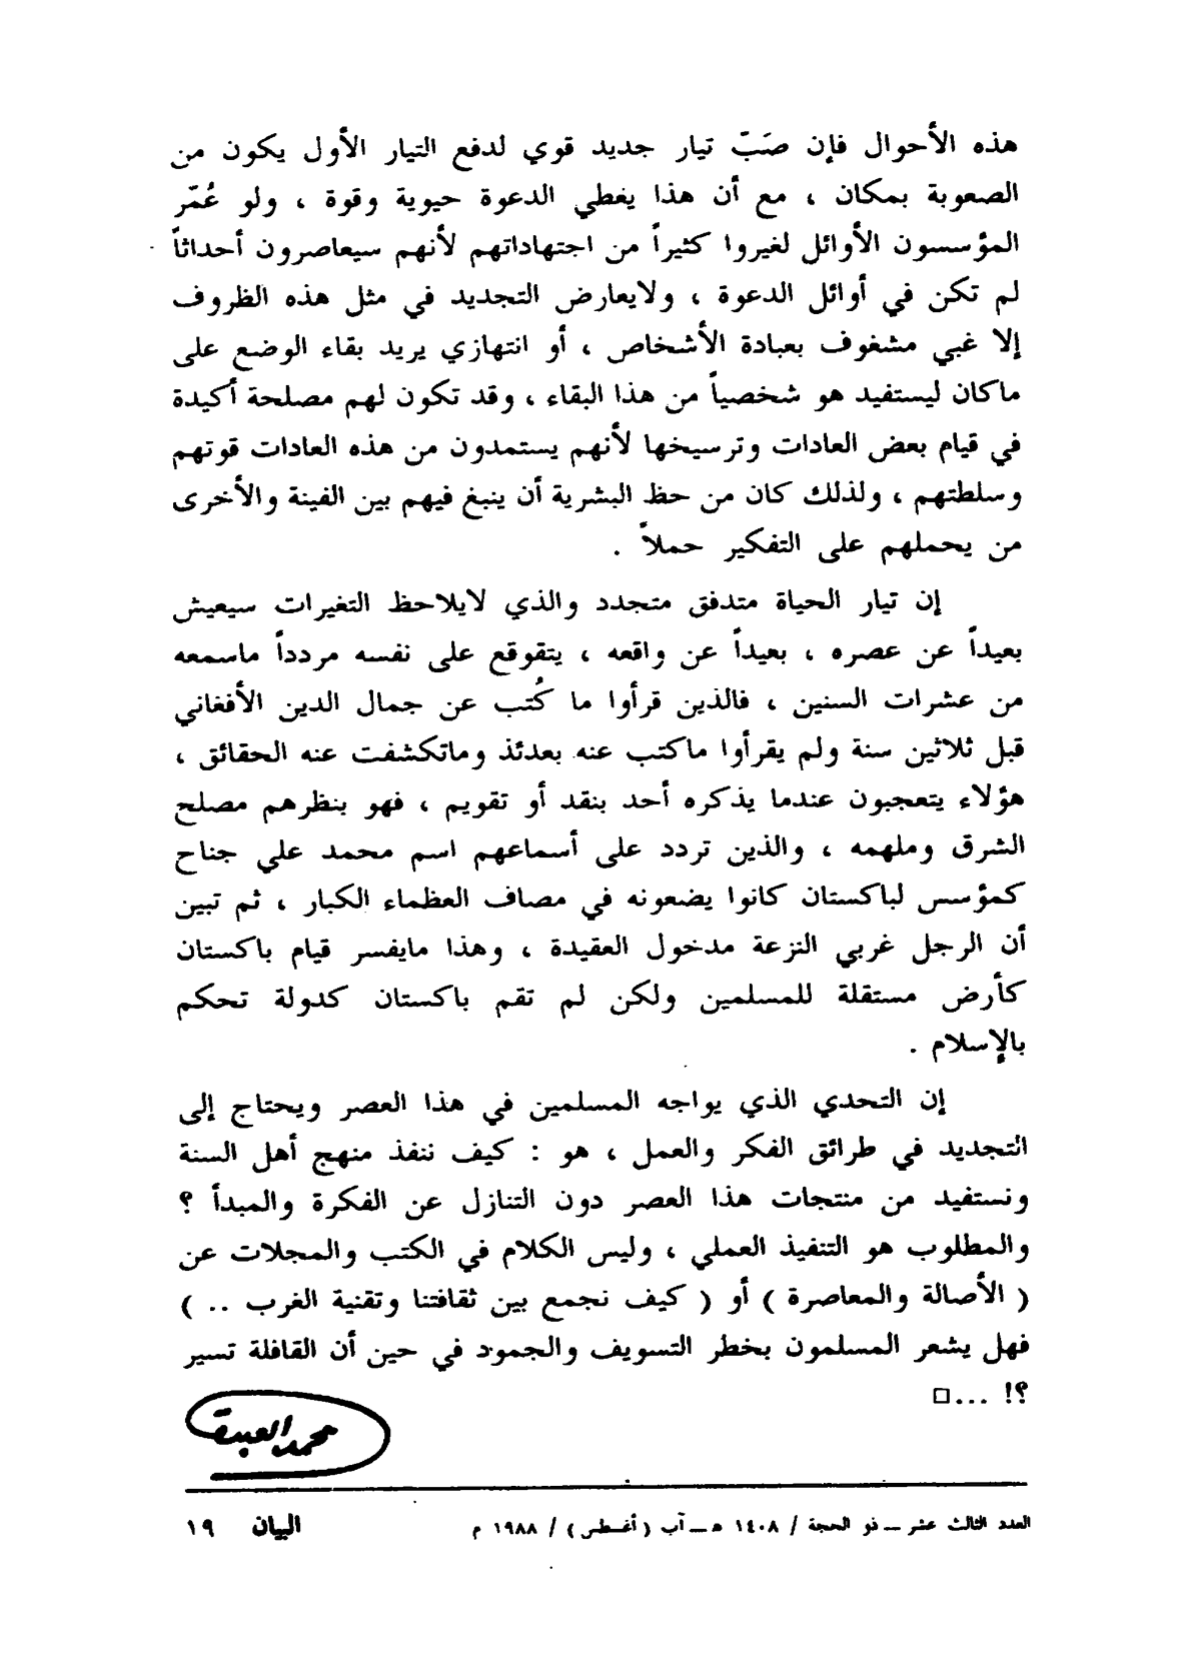 هذه الأحوال فإن صَبّ تيار جديد قوي لدفع التيار الأول يكون من
الصعوبة بمكان ، مع أن هذا يغطي الدعوة حيوية وقوة ، ولو عُمّر
المؤسسون الأوائل لغيروا كثيراً من اجتهاداتهم لأنهم سيعاصرون أحداثاً
لم تكن في أوائل الدعوة ، ولايعارض التجديد في مثل هذه الظروف
إلا غبي مشغوف بعبادة الأشخاص ، أو انتهازي يريد بقاء الوضع على
ماكان ليستفيد هو شخصياً من هذا البقاء ، وقد تكون لهم مصلحة أكيدة
في قيام بعض العادات وترسيخها لأنهم يستمدون من هذه العادات قوتهم
وسلطتهم ، ولذلك كان من حظ البشرية أن ينبغ فيهم بين الفينة والأخرى
من يحملهم على التفكير حملاً .
إن تيار الحياة متدفق متجدد والذي لايلاحظ التغيرات سيعيش
بعيداً عن عصره ، بعيداً عن واقعه ، يتقوقع على نفسه مردداً ماسمعه
من عشرات السنين ، فالذين قرأوا ما كُتب عن جمال الدين الأفغاني
قبل ثلاثين سنة ولم يقرأوا ماكتب عنه بعدئذ وماتكشفت عنه الحقائق ،
هؤلاء يتعجبون عندما يذكره أحد بنقد أو تقويم ، فهو بنظرهم مصلح
الشرق وملهمه ، والذين تردد على أسماعهم اسم محمد علي جناح
كمؤسس لباكستان كانوا يضعونه في مصاف العظماء الكبار ، ثم تبين
أن الرجل غربي النزعة مدخول العقيدة ، وهذا مايفسر قيام باكستان
كأرض مستقلة للمسلمين ولكن لم تقم باكستان كدولة تحكم
بالإسلام .
إن التحدي الذي يواجه المسلمين في هذا العصر ويحتاج إلى
التجديد في طرائق الفكر والعمل ، هو : كيف ننفذ منهج أهل السنة
ونستفيد من منتجات هذا العصر دون التنازل عن الفكرة والمبدأ ؟
والمطلوب هو التنفيذ العملي ، وليس الكلام في الكتب والمجلات عن
( الأصالة والمعاصرة ) أو ( كيف نجمع بين ثقافتنا وتقنية الغرب .. )
فهل يشعر المسلمون بخطر التسويف والجمود في حين أن القافلة تسير
؟! ...□
محمد العبدة
العدد الثالث عشر ــ ذو الحجة / ١٤٠٨ هـ ــ آب ( أغسطس ) / ١٩٨٨ م البيان ١٩